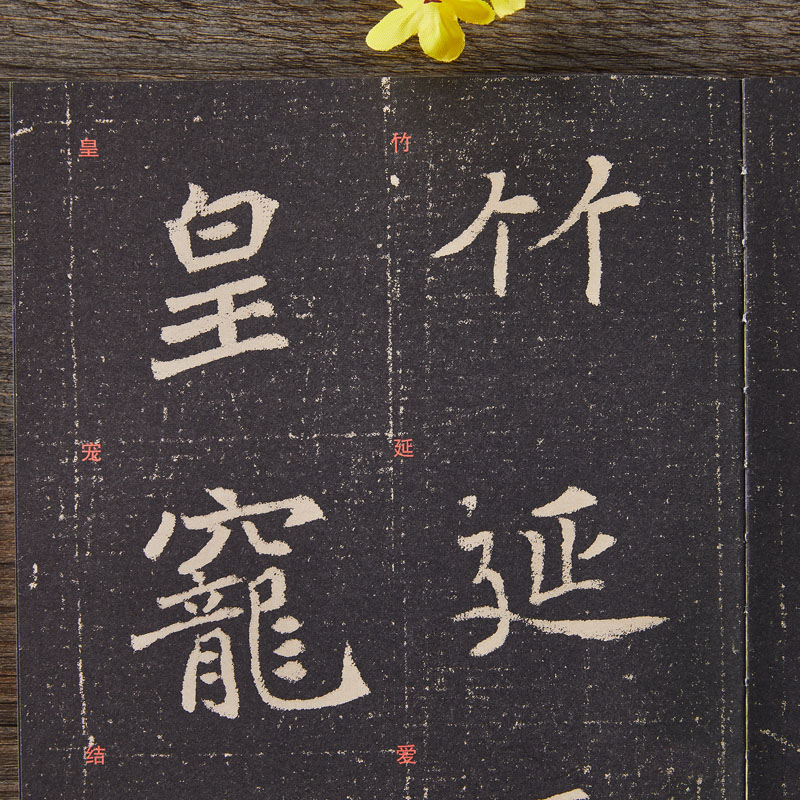 竹延爱
竹延
皇宠结
皇寵